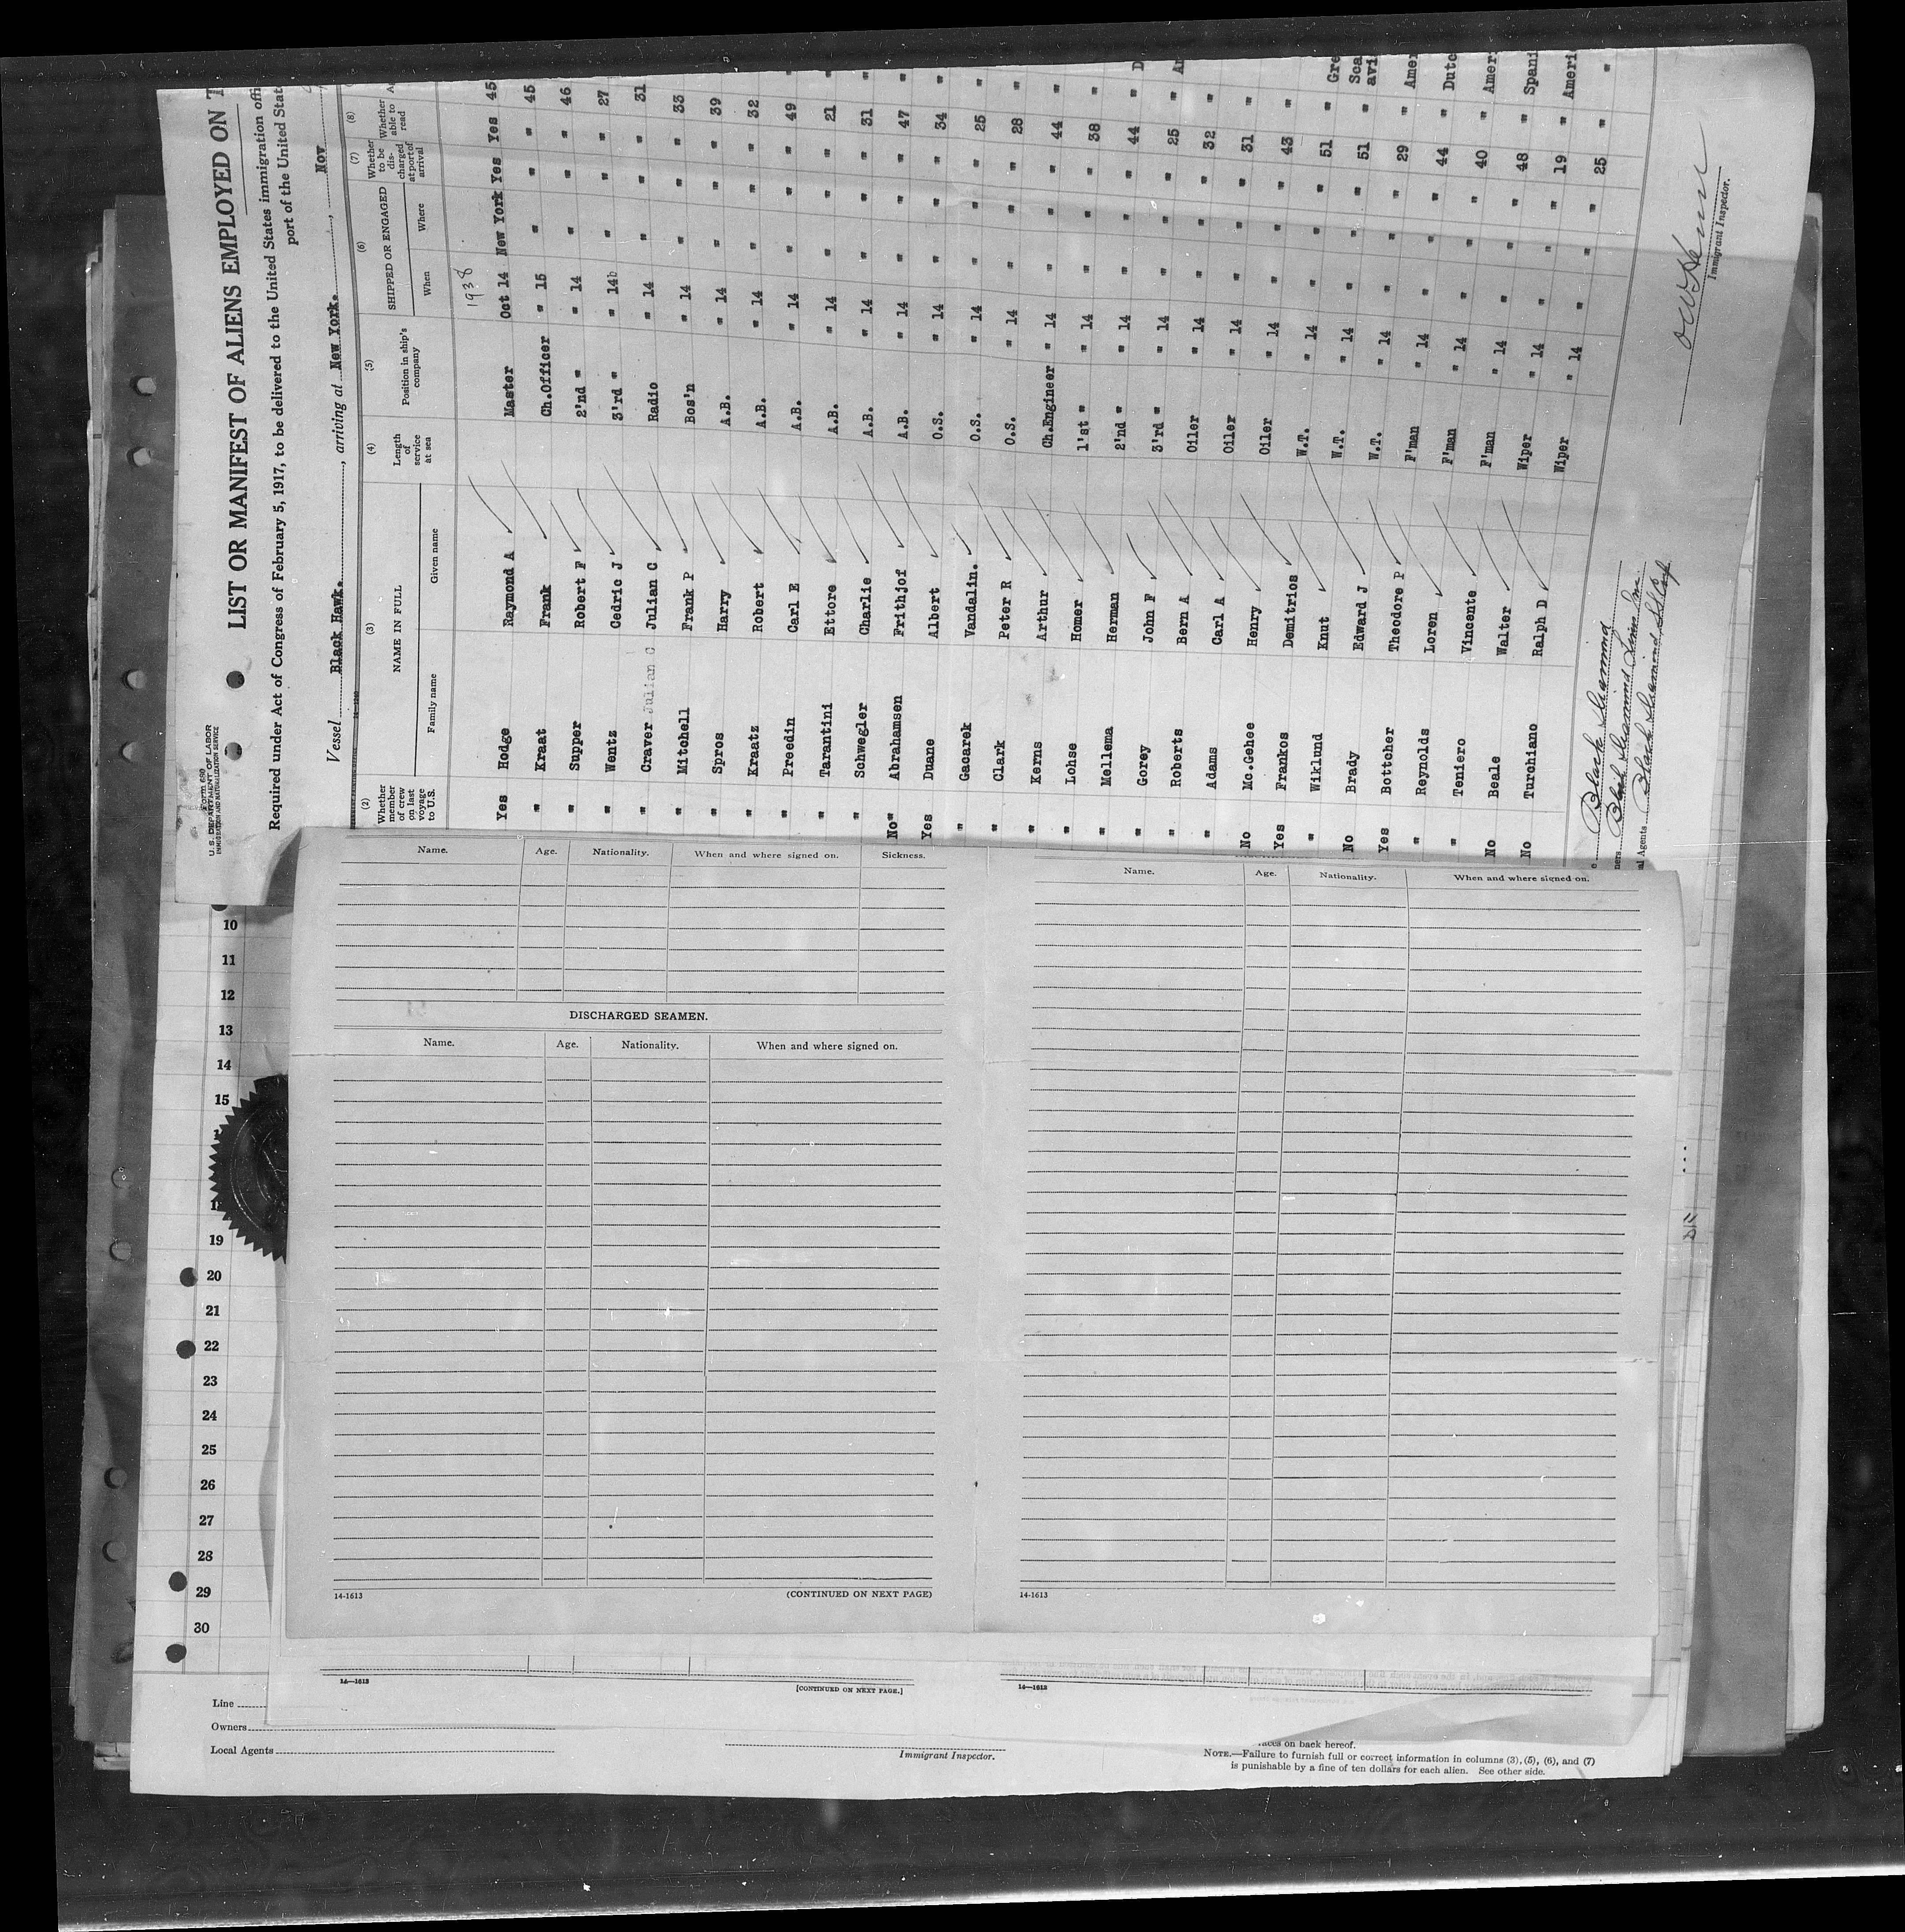 Form 690
U. S. DEPARTMENT OF LABOR
IMMIGRATION AND NATURALIZATION SERVICE
LIST OR MANIFEST OF ALIENS EMPLOYED ON
Required under Act of Congress of February 5, 1917, to be delivered to the United States immigration
port of the United
Vessel Black Hawk., arriving at New York., Nov
(2) (3) (4) (5) (6) (7) (8)
Whether member of crew on last voyage to U.S. NAME IN FULL Length of service at sea Position in ship's company SHIPPED OR ENGAGED Whether to be discharged at port of arrival Whether able to read
Family name Given name When Where
1938
Yes Hodge Raymond A Master Oct 14 New York Yes Yes 45
" Kraat Frank Ch.Officer " 15 " " " 45
" Supper Robert F 2'nd " " 14 " " " 46
" Wentz Cedric J 3'rd " " 14b " " " 27
" Craver Julian C Julian C Radio " 14 " " " 31
" Mitchell Frank P Bos'n " 14 " " " 33
" Spros Harry A.B. " 14 " " " 39
" Kraatz Robert A.B. " 14 " " " 32
" Preedin Carl E A.B. " 14 " " " 49
" Tarantini Ettore A.B. " 14 " " " 21
" Schwegler Charlie A.B. " 14 " " " 31
No" Abrahamsen Frithjof A.B. " 14 " " " 47
Yes Duane Albert O.S. " 14 " " " 34
" Gacarek Vandalin. O.S. " 14 " " " 25
" Clark Peter R O.S. " 14 " " " 28
" Kerns Arthur Ch.Engineer " 14 " " " 44
" Lohse Homer 1'st " " 14 " " " 38
" Mellema Herman 2'nd " " 14 " " " 44
" Gorey John F 3'rd " " 14 " " " 25
" Roberts Bern A Oiler " 14 " " " 32
" Adams Carl A Oiler " 14 " " " 31
No Mc.Gehee Henry Oiler " 14 " " " 43
Yes Frankos Demitrios W.T. " 14 " " " 51
" Wiklund Knut W.T. " 14 " " " 51
No Brady Edward J W.T. " 14 " " " 29
Yes Bottcher Theodore P F'man " 14 " " " 44
" Reynolds Loren F'man " 14 " " " 40
" Teniero Vincente F'man " 14 " " " 48
No Beale Walter Wiper " 14 " " " 19
No Turchiano Ralph D Wiper " 14 " " " 25
Black Diamond
Black Diamond Lines Inc.
Agents Black Diamond SS Corp
Immigrant Inspector.
Name. Age. Nationality. When and where signed on. Sickness.
DISCHARGED SEAMEN.
Name. Age. Nationality. When and where signed on.
14-1613 (CONTINUED ON NEXT PAGE)
Name. Age. Nationality. When and where signed on.
14-1613
10
11
12
13
14
15
19
20
21
22
23
24
25
26
27
28
29
30
14—1613 [CONTINUED ON NEXT PAGE.]
14—1613
Line
Owners
Local Agents
Immigrant Inspector.
races on back hereof.
NOTE.—Failure to furnish full or correct information in columns (3), (5), (6), and (7)
is punishable by a fine of ten dollars for each alien. See other side.